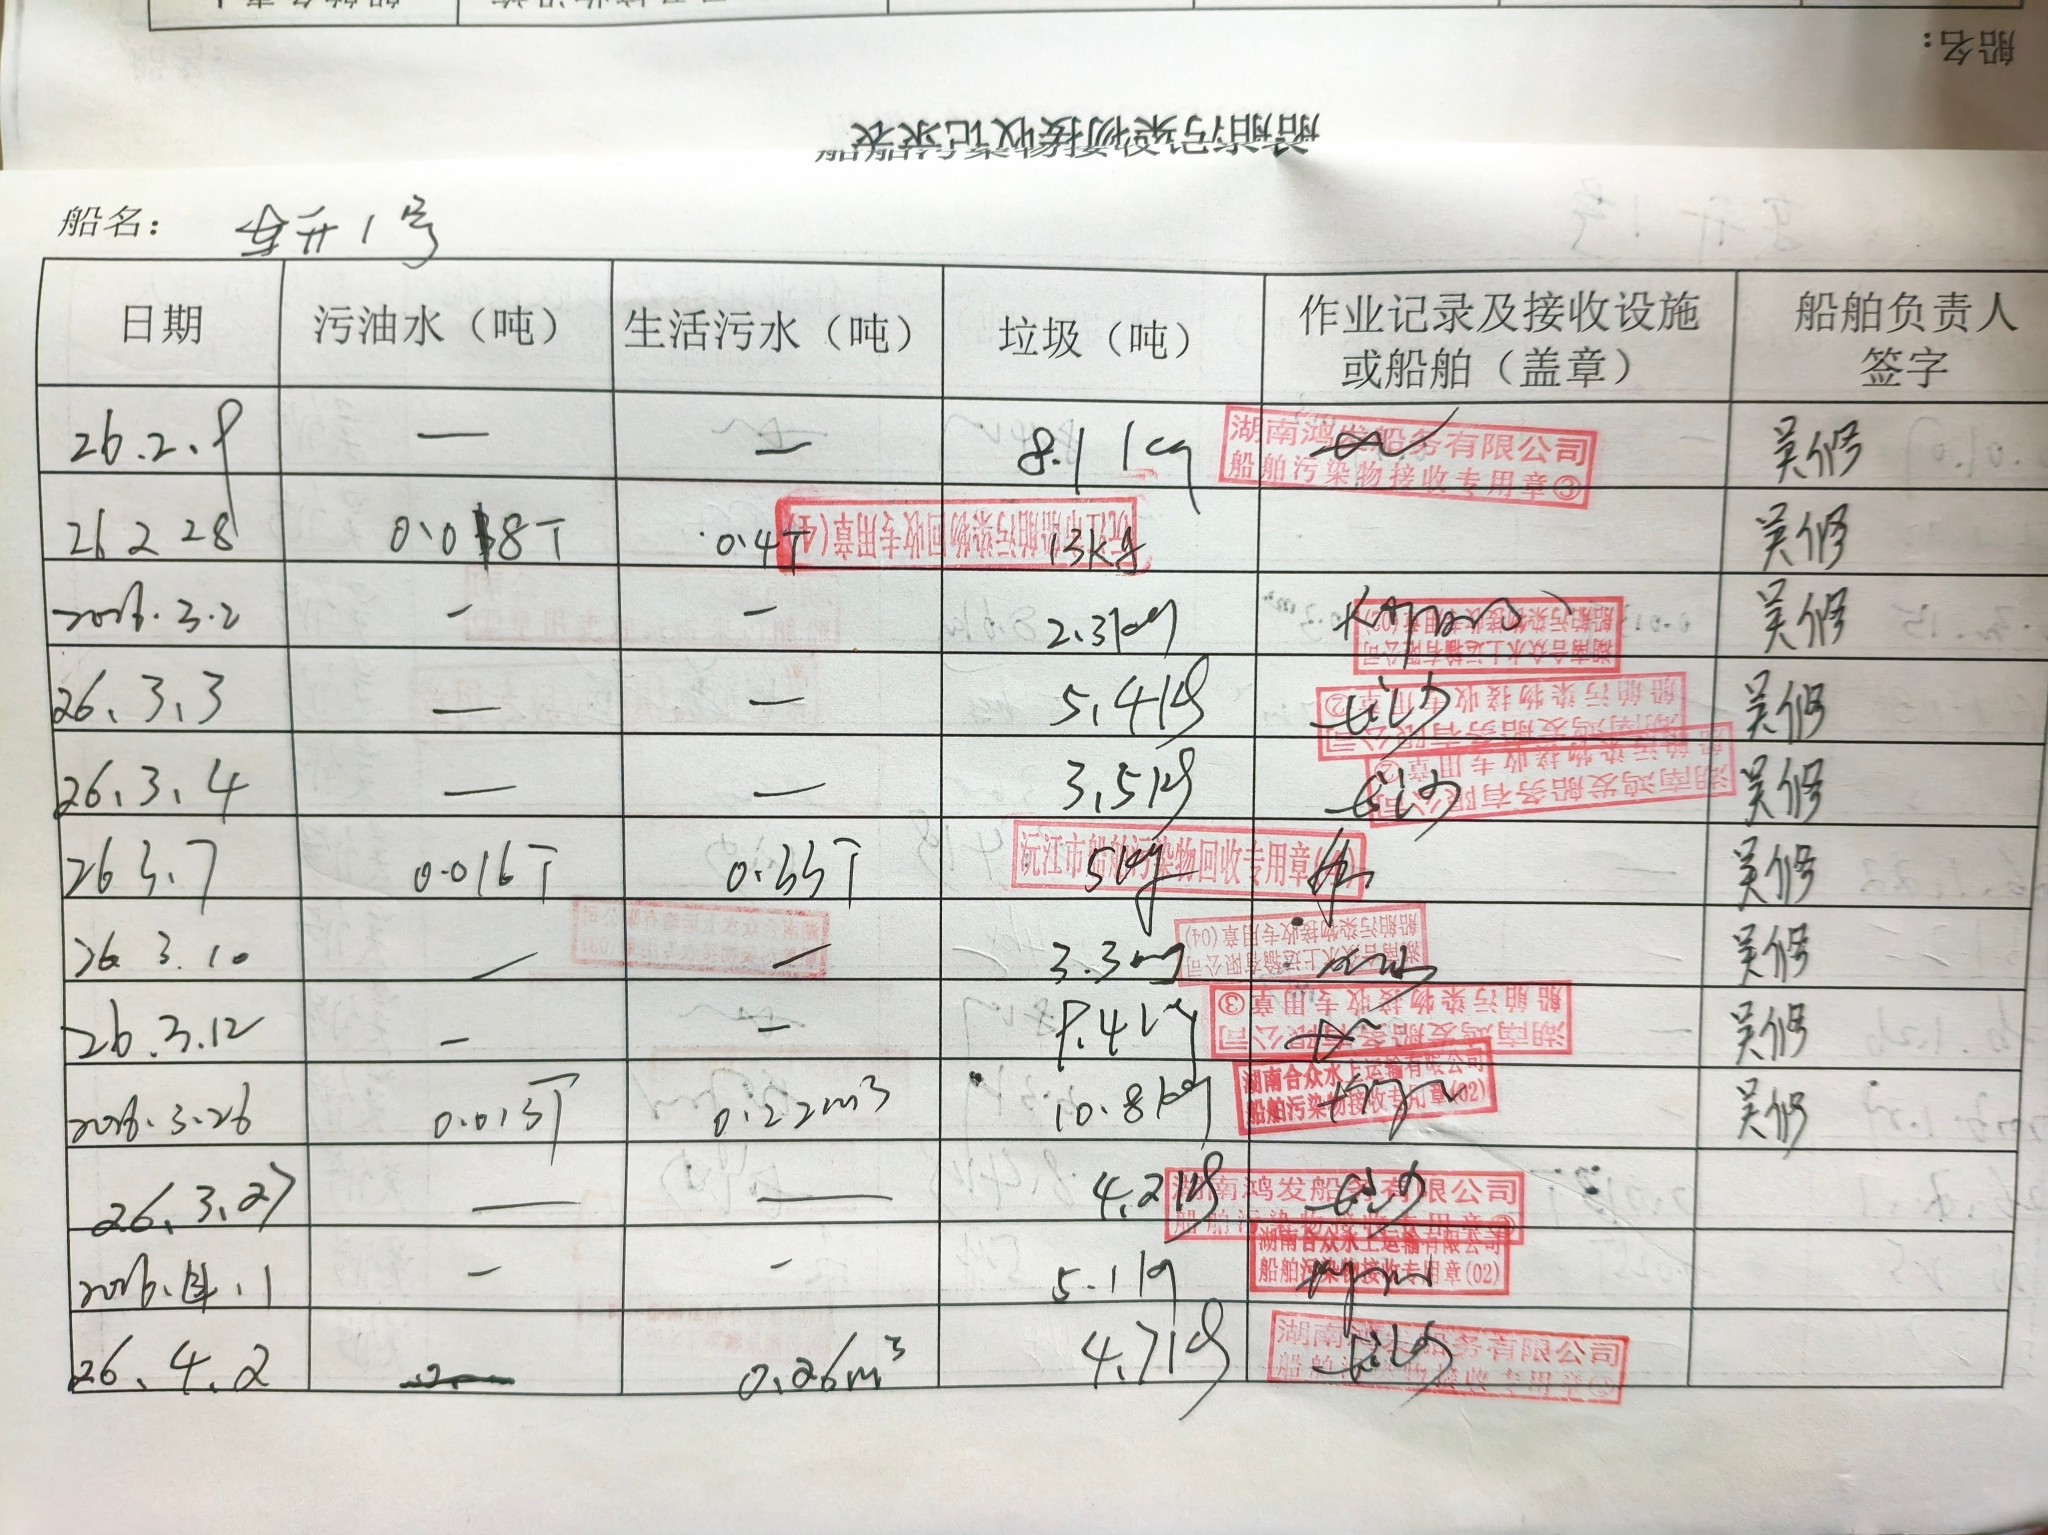 船名：
船舶污染物接收记录表
船名： 东升1号
日期 污油水（吨） 生活污水（吨） 垃圾（吨） 作业记录及接收设施或船舶（盖章） 船舶负责人签字
26.2.9 — — 8.1kg 湖南鸿发船务有限公司 船舶污染物接收专用章① 吴修
26 2 28 0.018T 0.4T 13kg 沅江市船舶污染物回收专用章(4) 吴修
2026.3.2 - - 2.3kg 湖南合众水上运输有限公司 船舶污染物接收专用章 吴修
26.3.3 — — 5.4kg 湖南鸿发船务有限公司 船舶污染物接收专用章② 吴修
26.3.4 — — 3.5kg 湖南鸿发船务有限公司 船舶污染物接收专用章② 吴修
26 3.7 0.016T 0.33T 5kg 沅江市船舶污染物回收专用章 吴修
26.3.10 — — 3.3kg 湖南合众水上运输有限公司 船舶污染物接收专用章(04) 吴修
26.3.12 - - 9.4kg 湖南鸿发船务有限公司 船舶污染物接收专用章③ 吴修
2026.3.26 0.013T 0.22m³ 10.8kg 湖南合众水上运输有限公司 船舶污染物接收专用章(02) 吴修
26.3.27 — — 4.2kg 湖南鸿发船务有限公司 船舶污染物接收专用章
2026.4.1 - - 5.1kg 湖南合众水上运输有限公司 船舶污染物接收专用章(02)
26.4.2 — 0.26m³ 4.7kg 湖南鸿发船务有限公司 船舶污染物接收专用章